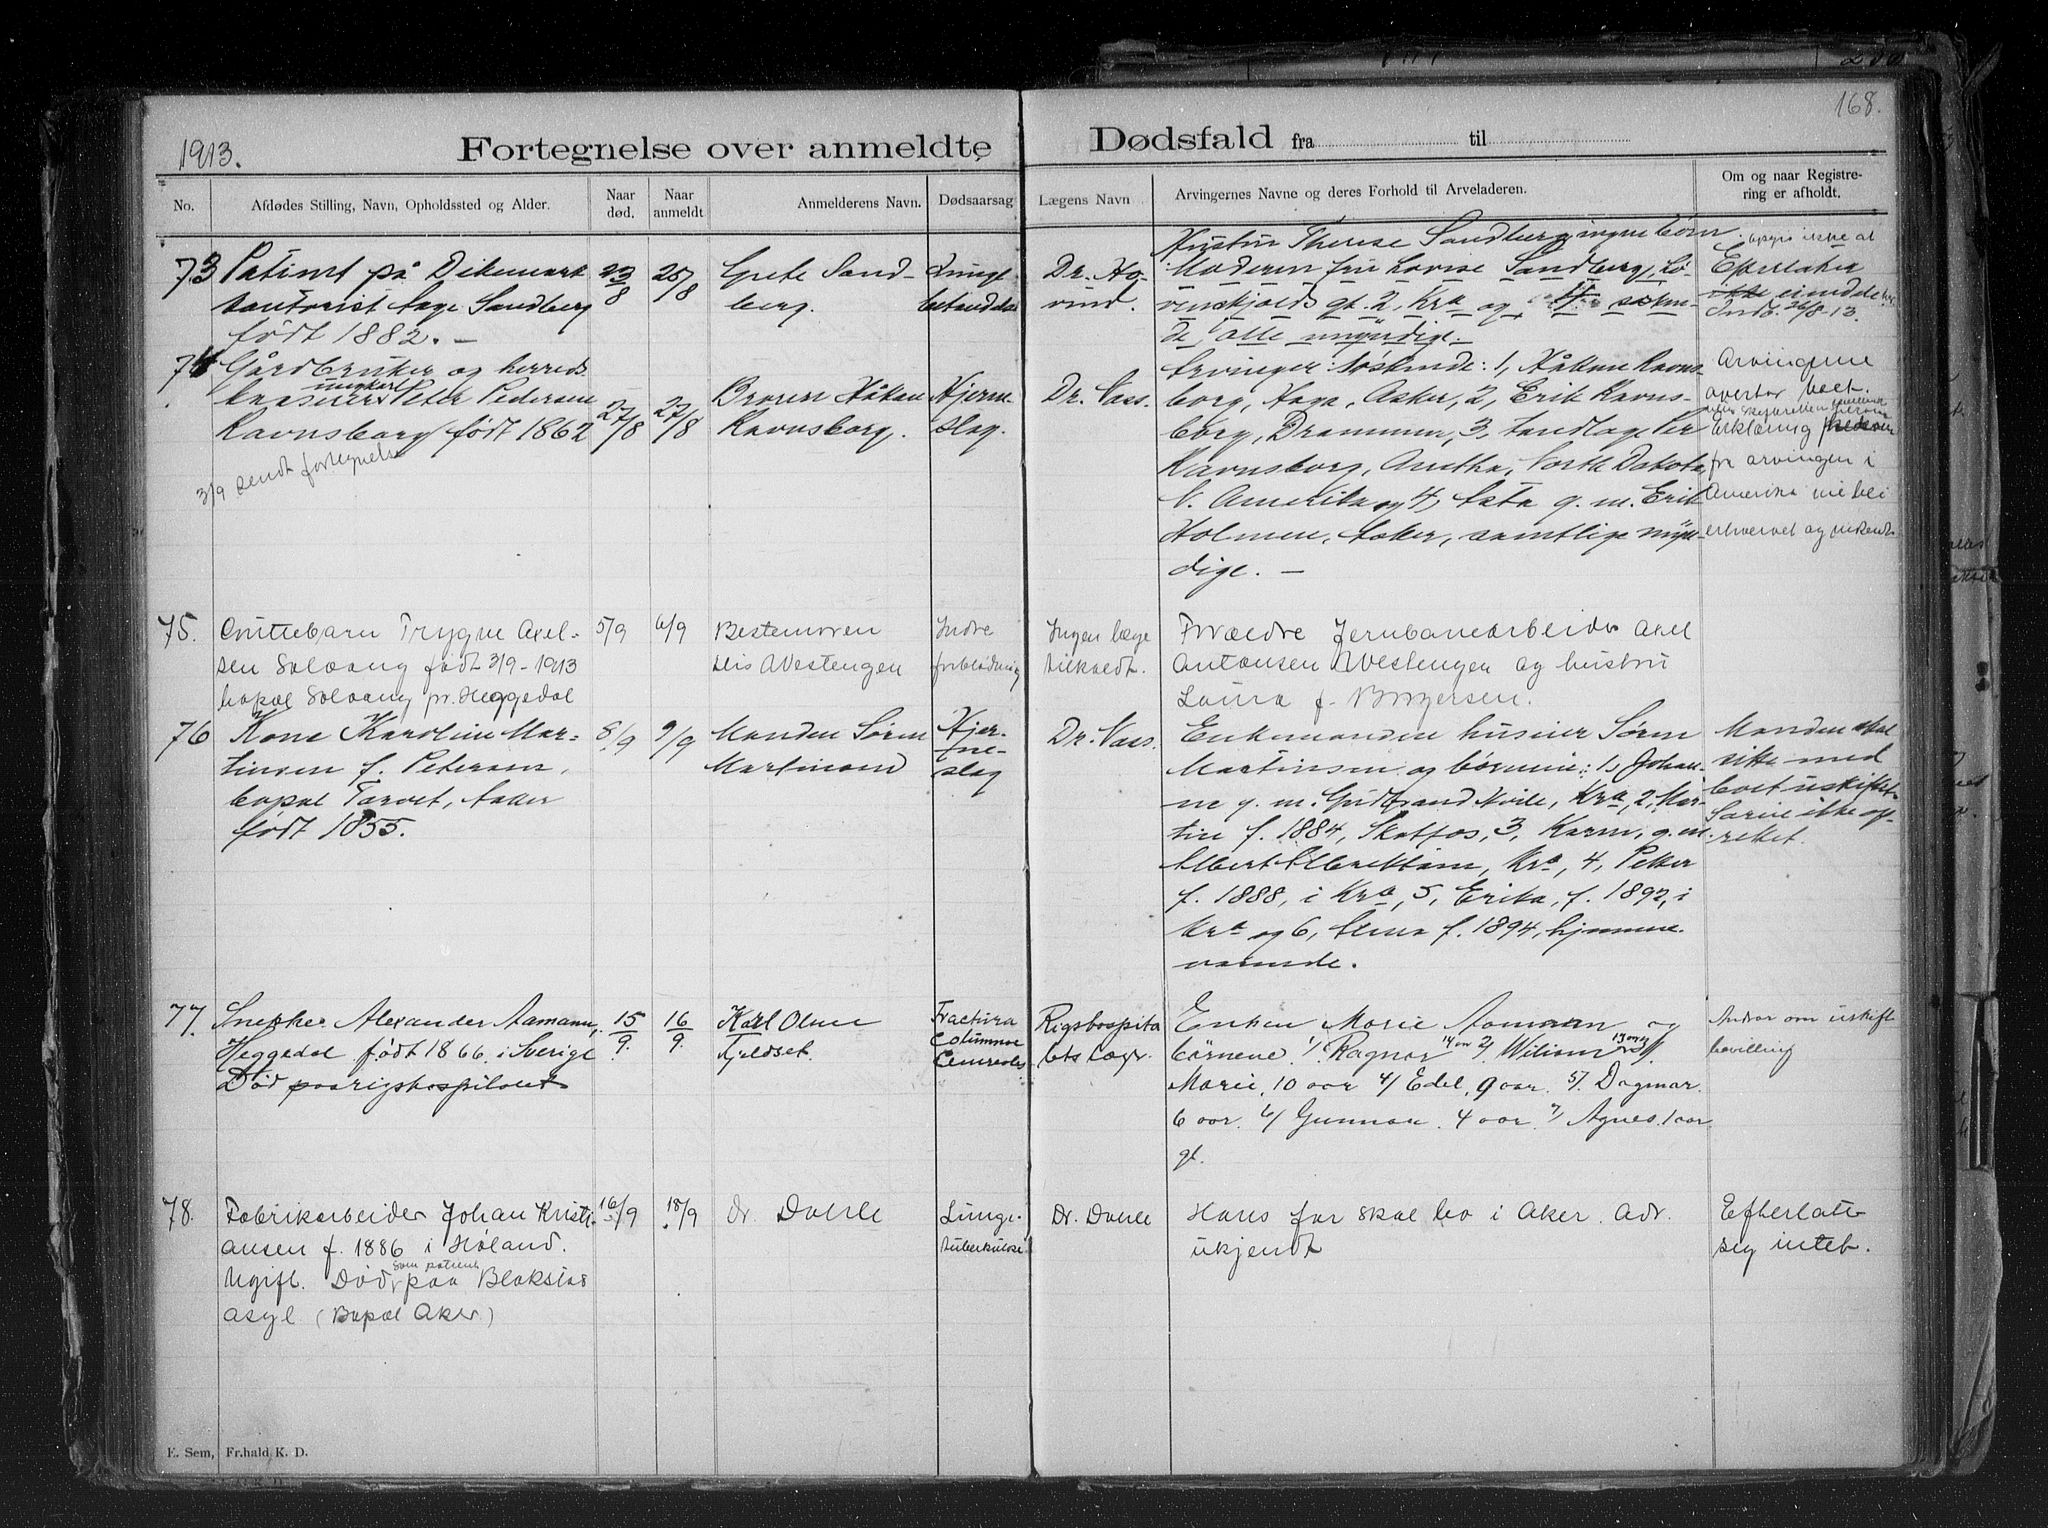 168.
1913.
Fortegnelse over anmeldte Dødsfald fra til
No.
Afdødes Stilling, Navn, Opholdssted og Alder.
Naar død.
Naar anmeldt
Anmelderens Navn.
Dødsaarsag
Lægens Navn
Arvingernes Navne og deres Forhold til Arveladeren.
Om og naar Registrering er afholdt.
73
Patient på Dikemark
kontorist Aage Sandberg
født 1882. —
23/8
25/8
Grete Sand-
berg.
Lunge
betændelse
Dr. Ho-
vind.
Hustru Therese Sandberg, ingen børn
Moderen fru Lovise Sandberg, Lø-
venskjolds gt. 2, Kra og søsken-
de, alle myndige.
ikke at
Efterlader
ikke eiendele
Indb. 26/8-13.
74
Gårdbruker og herreds
kasserer ungkarl Peter Pedersen
Ravnsborg født 1862
3/9 sendt fortegnelse
27/8
27/8
Broren Håkon
Ravnsborg.
Hjerne-
slag.
Dr. Vass.
Arvinger: søskende: 1, Håkon Ravns-
borg, Haga, Asker, 2, Erik Ravns-
borg, Drammen, 3, tandlæge Per
Ravnsborg, North Dakota,
N. Amerika og 4, Asta g. m. Erik
Holmen, Asker, samtlige myn-
dige. —
Arvingene
overtar boet.
Erklæring
fra arvingen i
Amerika vil bli
erhvervet og indsendt
75.
Guttebarn Trygve Axel-
sen Solvang født 3/9-1913
bopæl Solvang pr. Heggedal
5/9
6/9
Bestemoren
Lis A Vestengen
Indre
forblødning
Ingen læge
tilkaldt.
Forældre Jernbanearbeider Axel
Antonsen Vestengen og hustru
Laura f. Birgersen.
76
Kone Karoline Mar-
tinsen f. Petersen,
bopæl Torvet, Asker
født 1855.
8/9
9/9
Manden Søren
Martinsen
Hjer-
ne-
slag
Dr. Vass.
Enkemanden huseier Søren
Martinsen og børnene: 1, Johan-
ne g. m. Gudbrand Kvile, Kra, 2, Mar-
tin f. 1884, Skotfos, 3, Karen, g. m.
Albert Albrettsen, Kra, 4, Petter
f. 1888, i Kra, 5, Erika, f. 1892, i
Kra og 6, Anna f. 1894, hjemme-
værende.
Manden skal
sitte med
boet uskiftet
Særeie ikke op-
rettet.
77.
Snekker Alexander Aamann,
Heggedal født 1866 i Sverige
Død paa rigshospitalet
15/9.
16/9.
Karl Olsen
Gjeldset.
Fractura
Columnae
Rigshospita
lets læge.
Enken Marie Aamann og
børnene 1/. Ragnar 14 aar 2/ Wiliam 13 aar 3/
Marie, 10 aar 4/ Edel, 9 aar. 5/. Dagmar.
6 aar. 6/ Gunnar. 4 aar. 7/ Agnes. 1 aar
gl.
Andrar om uskift
bevilling
78.
Fabrikarbeider Johan Kristi-
ansen f. 1886 i Høland.
Ugift. Død som patient paa Blakstad
asyl (Bopæl Aker)
16/9
18/9
Dr. Doerle
Lunge-
tuberkulose
Dr. Doerle
Hans far skal bo i Aker. Adr.
ukjendt
Efterlatt
seg intet.
E. Sem, Fr.hald K. D.